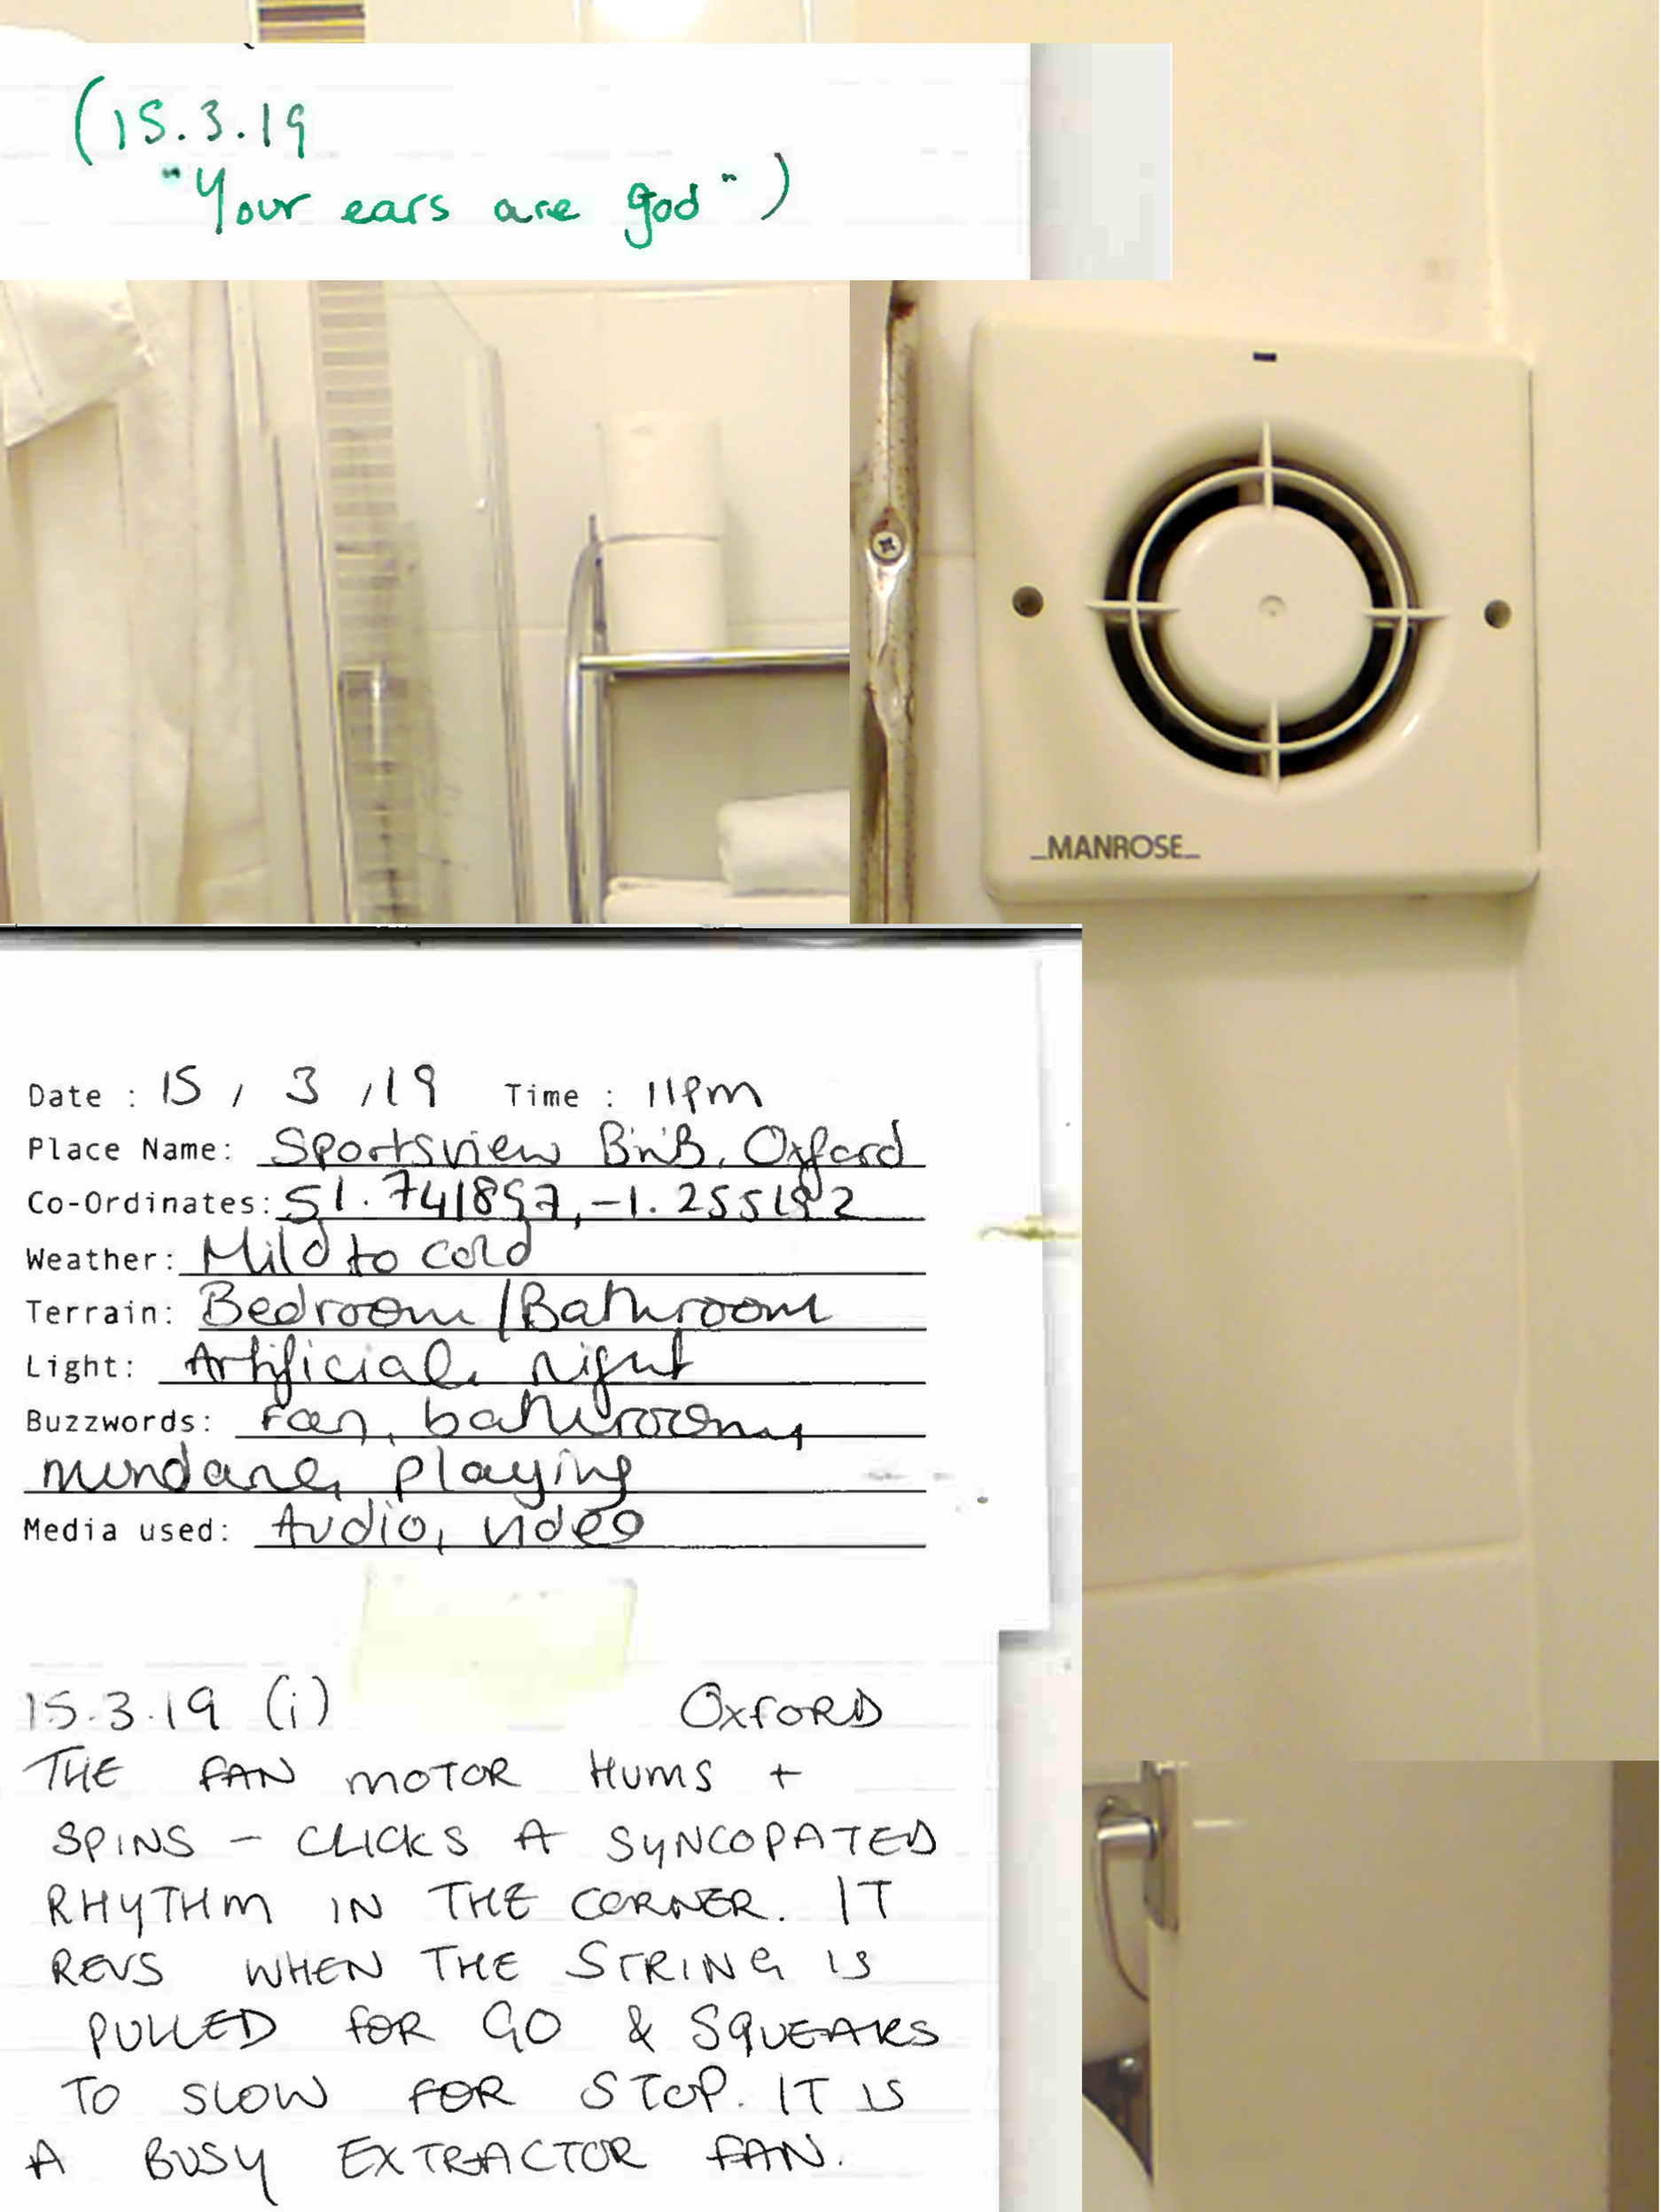 (15.3.19
"Your ears are god")
MANROSE
Date : 15 / 3 /19 Time : 11pm
Place Name: Sportsview B'n'B, Oxford
Co-Ordinates: 51.741857,-1.255192
Weather: Mild to cold
Terrain: Bedroom/Bathroom
Light: Artificial, night
Buzzwords: Fan, bathroom,
mundane, playing
Media used: Audio, video
15.3.19 (i) OXFORD
THE FAN MOTOR HUMS +
SPINS – CLICKS A SYNCOPATED
RHYTHM IN THE CORNER. IT
REVS WHEN THE STRING IS
PULLED FOR GO & SQUEAKS
TO SLOW FOR STOP. IT IS
A BUSY EXTRACTOR FAN.